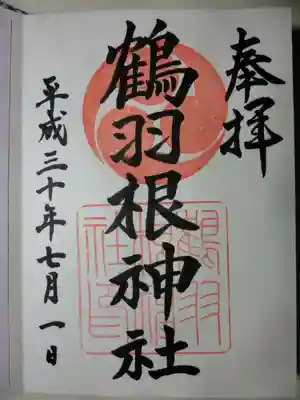 奉拝
鶴羽根神社
平成三十年七月一日